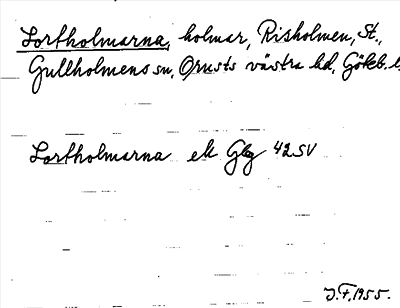 Lortholmarna, holmar, Risholmen, St.,
Gullholmens sn, Orusts västra hd, Göteb. l.
Lortholmarna ek Gbg 42 SV
J.F. 1955.